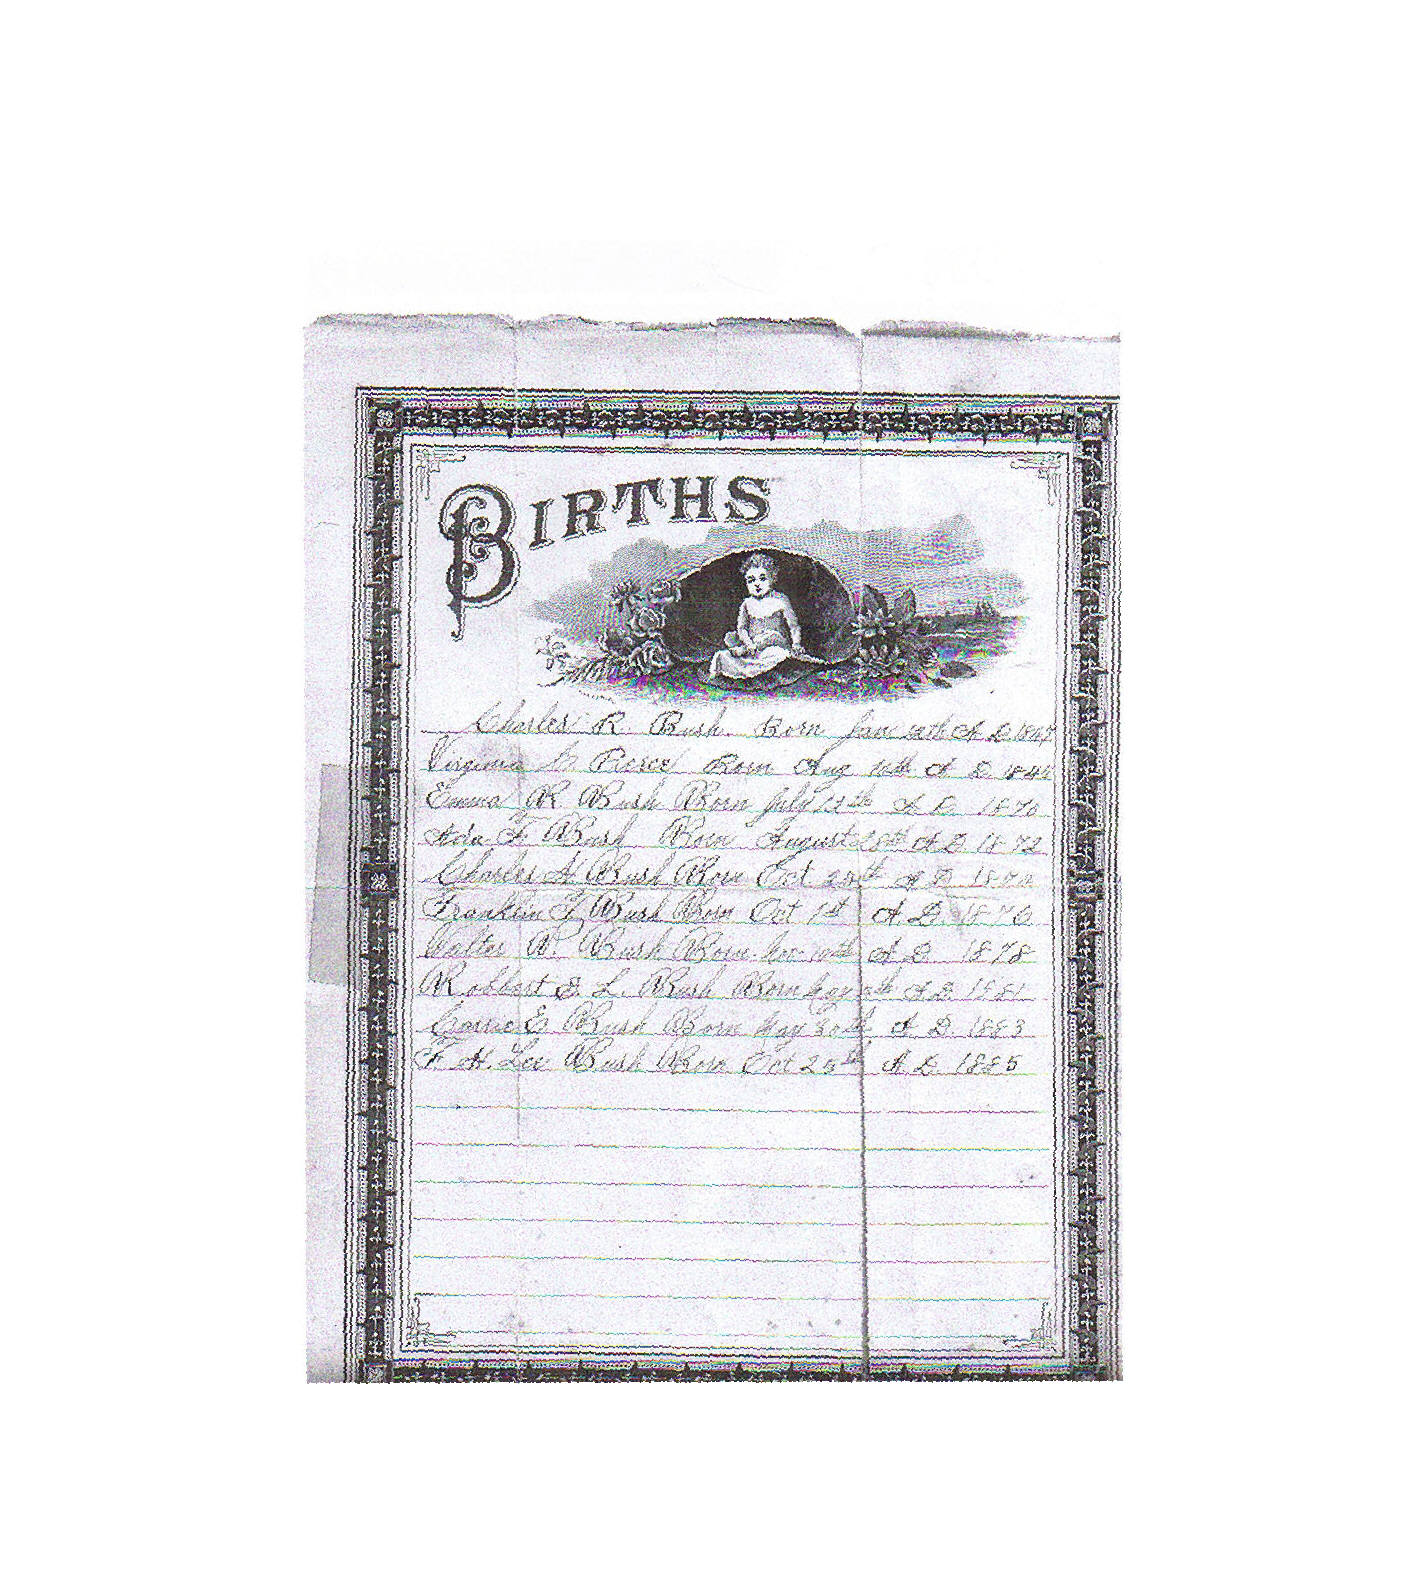 BIRTHS
Charles R. Bush. Born A D
Virginia Pierce Born Aug 10th A D
Emma R. Bush Born July 12th A D. 1870
Ada F. Bush Born August 28th A D 1872
Charles H. Bush Born Oct A D
Franklin F. Bush Born Oct 1st A. D. 1876
Walter Bush Born Nov 10th A D. 1878
Robbert E. L. Bush Born May A D. 1881
Carrie E. Bush Born May 30th A D. 1883
F. H. Lee Bush Born Oct 25th A. D. 1885